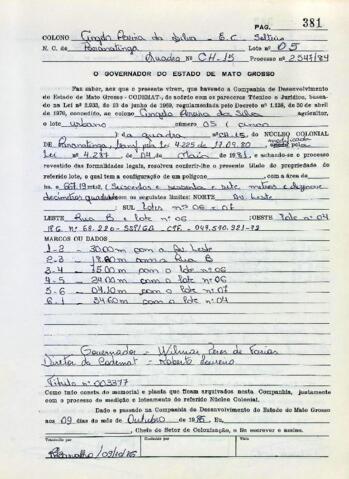 PAG. 381
COLONO Angelo Pereira da Silva - E.C. Solteiro
N. C. de Paranatinga Lote nº 05
Quadra nº CH-15 Processo nº 2.547/84
O GOVERNADOR DO ESTADO DE MATO GROSSO
Faz saber, aos que o presente virem, que havendo a Companhia de Desenvolvimento
do Estado de Mato Grosso - CODEMAT, de acôrdo com os pareceres Técnico e Jurídico, basea-
do na Lei nº 2.903, de 23 de junho de 1969, regulamentada pelo Decreto nº 1.138, de 30 de abril
de 1970, concedido, ao colono Angelo Pereira da Silva, agricultor,
o lote urbano número 05 (cinco
) da quadra nº CH.15, do NÚCLEO COLONIAL
de Paranatinga, pela Lei 4.225 de 17.09.80 modificada pela
Lei nº 4.287 de de Maio 1981, e achando-se o processo
revestido das formalidades legais, resolveu conferir-lhe o presente título de propriedade do
referido lote, o qual tem a configuração de um poligono com a área de
ha. e 667,19 mts2, (Seiscentos e sessenta e sete metros e dezenove
decímetros quadrados com os seguintes limites: NORTE Av. Leste
SUL lotes nºs 06 - 07
LESTE Rua B e lote nº 06 ;OESTE lote nº 04
RG. nº 68.220-SSP/GO CPF. 049.590.321-72
MARCOS OU DADOS
1-2 - 30.00m com a Av Leste
2-3 - 18.80m com a Rua B
3-4 - 15.00m com o lote nº 06
4-5 - 24.00m com o lote nº 06
5-6 - 04.10m com o lote nº 07
6-1 - 34.60m com o lote nº 04
Governador - Wilmar Peres de Farias
Diretor da Codemat - Roberto Loureiro
Título nº 003377
Como tudo consta do memorial e planta que ficam arquivados nesta Companhia, juntamente
com o processo de medição e loteamento do referido Núcleo Colonial.
Dado e passado na Companhia de Desenvolvimento do Estado do Mato Grosso
aos 09 dias do mês de Outubro de 1986, Eu,
Chefe do Setor de Colonização, o fiz escrever e assino.
Transcrito por
Conferido por
Visto